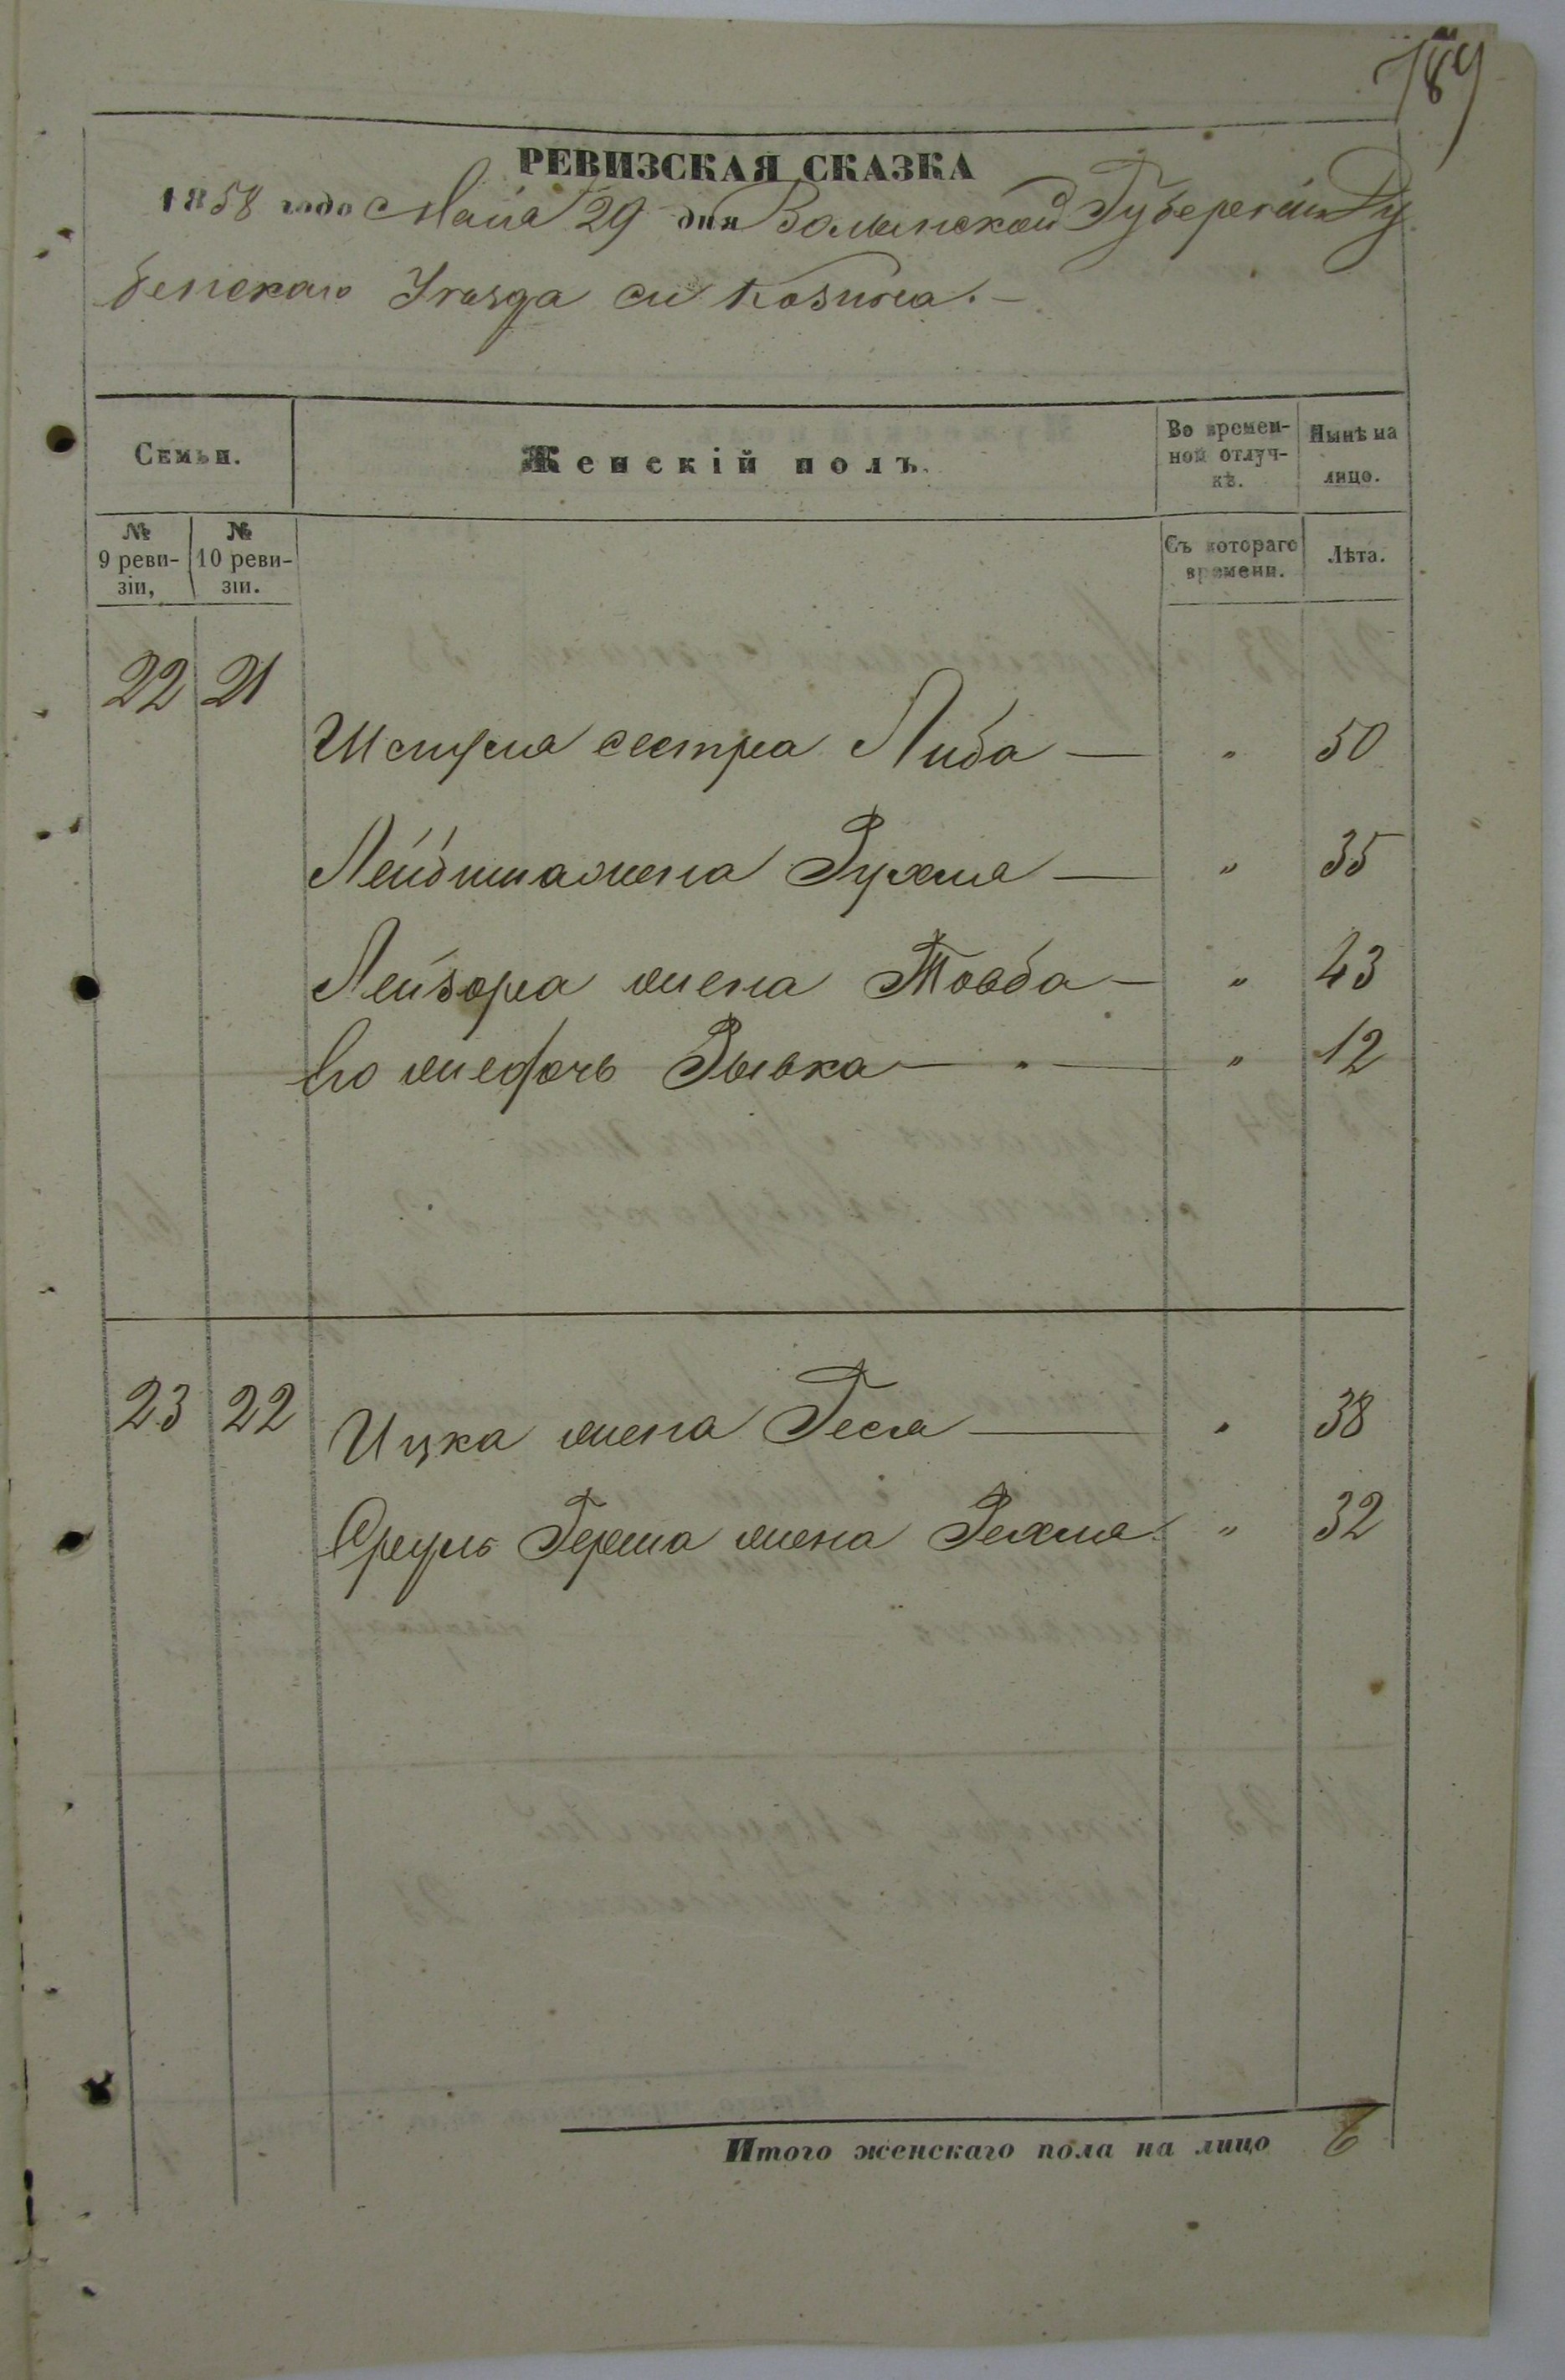 789
РЕВИЗСКАЯ СКАЗКА
1858 года Маія 29 дня Волынской Губерніи Ду
бенскаго Уезда м Козина. —
Семьи.
Женскій полъ.
Во времен-
ной отлуч-
кѣ.
Нынѣ на
лицо.
№
9 реви-
зіи,
№
10 реви-
зіи.
Съ котораго
времени.
Лѣта.
22 21
Шмуля сестра Либа — " 50
Лейбиша жена Рухля — " 35
Лейзора жена Товба — " 43
Его же дочь Рывка — " 12
23 22 Ицка жена Гея — " 38
Сруль Герша жена Рехля " 32
Итого женскаго пола на лицо 6